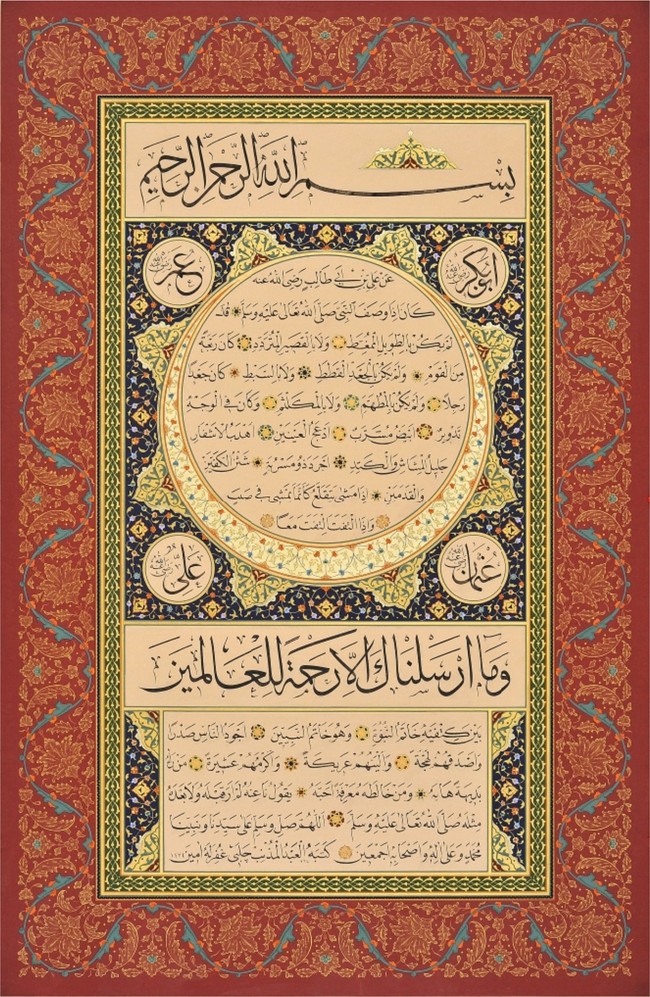 بسم الله الرحمن الرحيم
ابوبكر رضي الله عنه
عمر رضي الله عنه
عن علي بن ابي طالب رضي الله عنه
كان اذا وصف النبي صلى الله تعالى عليه وسلم قال
لم يكن بالطويل الممغط ولا بالقصير المتردد كان ربعة
من القوم ولم يكن بالجعد القطط ولا بالسبط كان جعدا
رجلا ولم يكن بالمطهم ولا بالمكلثم وكان في الوجه
تدوير ابيض مشرب ادعج العينين اهدب الاشفار
جليل المشاش والكتد اجرد ذو مسربة شثن الكفين
والقدمين اذا مشى يتقلع كانما يمشي في صبب
واذا التفت التفت معا
عثمان رضي الله عنه
علي رضي الله عنه
وما ارسلناك الا رحمة للعالمين
بين كتفيه خاتم النبوة وهو خاتم النبيين اجود الناس صدرا
واصدقهم لهجة والينهم عريكة واكرمهم عشيرة من راه
بديهة هابه ومن خالطه معرفة احبه يقول ناعته لم ار قبله ولا بعده
مثله صلى الله تعالى عليه وسلم اللهم صل وسلم على سيدنا ونبينا
محمد وعلى اله واصحابه اجمعين كتبه العبد المذنب غفر له امين